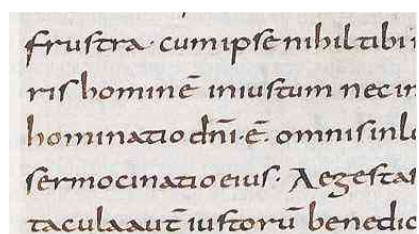 frustra · cum ipse nihil tibi
ris hominē iniustum nec in
hominatio dn̄i · ē · omnis inlu
sermocinatio eius · Aegestas
tacula aut̄ iustorū benedic